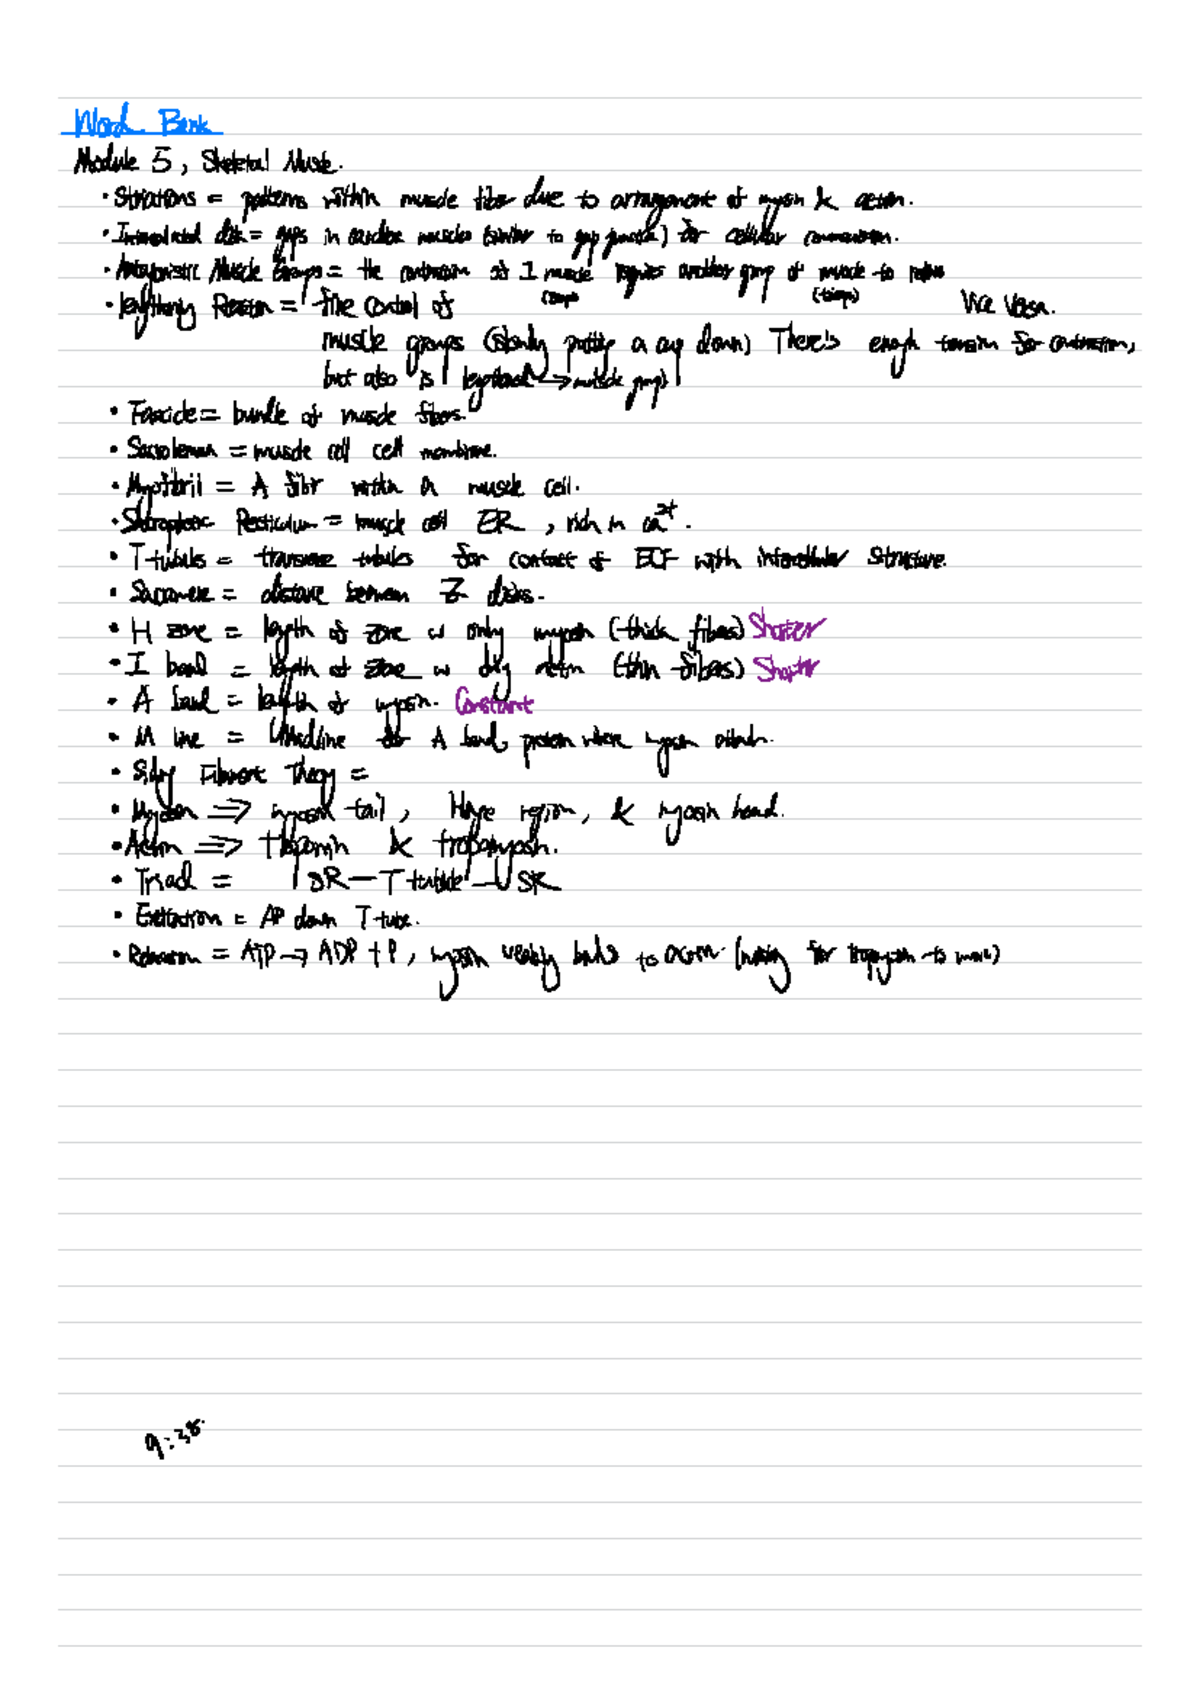 Word Bank
Module 5, Skeletal Muscle.
• Striations = patterns within muscle fiber due to arrangement of myosin & actin.
• Intercalated disk = gaps in cardiac muscles (similar to gap junction) for cellular communication.
• Antagonistic Muscle Groups = the contraction of 1 muscle requires another group of muscle to relax
(biceps) (triceps) Vice Versa.
• lengthening Reaction = fine control of
muscle groups (slowly putting a cup down) There's enough tension for contraction,
but also is lengthened → muscle group
• Fascicle = bundle of muscle fibers.
• Sarcolemma = muscle cell cell membrane.
• Myofibril = A fibr within a muscle cell.
• Sarcoplasmic Recticulum = muscle cell ER, rich in ca²⁺.
• T-tubules = transverse tubules for contact of ECF with intracellular structure.
• Sarcomere = distance between Z disks.
• H zone = length of zone w only myosin (thick fibers) Shorter
• I band = length of zone w only actin (thin fibers) Shorter
• A band = length of myosin. Constant
• M line = Midline for A band, protein where myosin attach.
• Sliding Filament Theory =
• Myosin => myosin tail, Hinge region, & myosin head.
• Actin => troponin & tropomyosin.
• Triad = SR — T tubule — SR
• Excitation = AP down T-tube.
• Relaxation = ATP → ADP + P, myosin weakly binds to actin. (waiting for tropomyosin to move)
9:38.